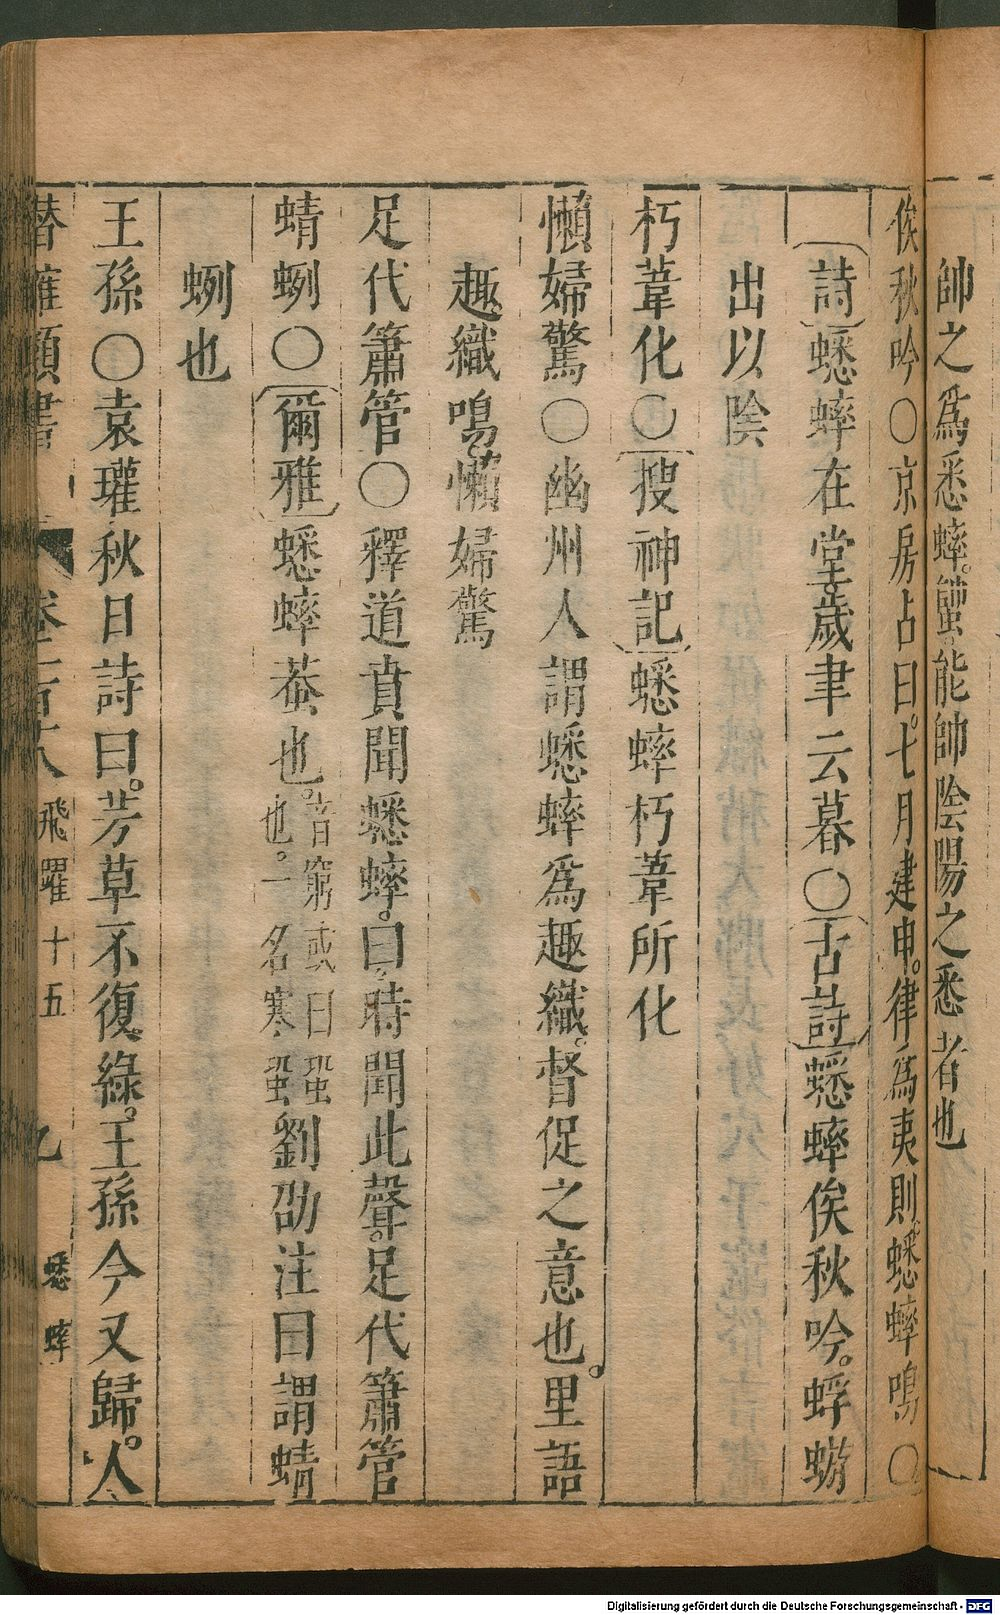 帥之爲悉蟀。蟹。能帥陰陽之悉者也
俟秋吟〇京房占曰。七月建申。律爲夷則。蟋蟀鳴〇
詩蟋蟀在堂。歲聿云暮〇古詩蟋蟀俟秋吟。蜉蝣
出以陰
朽葦化〇搜神記蟋蟀朽葦所化
懶婦驚〇幽州人謂蟋蟀爲趣織。督促之意也。里語
趣織鳴。懶婦驚
足代簫管〇釋道賁聞蟋蟀。曰。時聞此聲。足代簫管
蜻蛚〇爾雅蟋蟀蛬也。音窮或曰蛩也。一名寒蛩劉劭注曰謂蜻
蛚也
王孫〇袁瓘秋日詩曰。芳草不復綠。王孫今又歸。人
潛確類書 卷一百 飛躍十五 蟋蟀
Digitalisierung gefördert durch die Deutsche Forschungsgemeinschaft - DFG